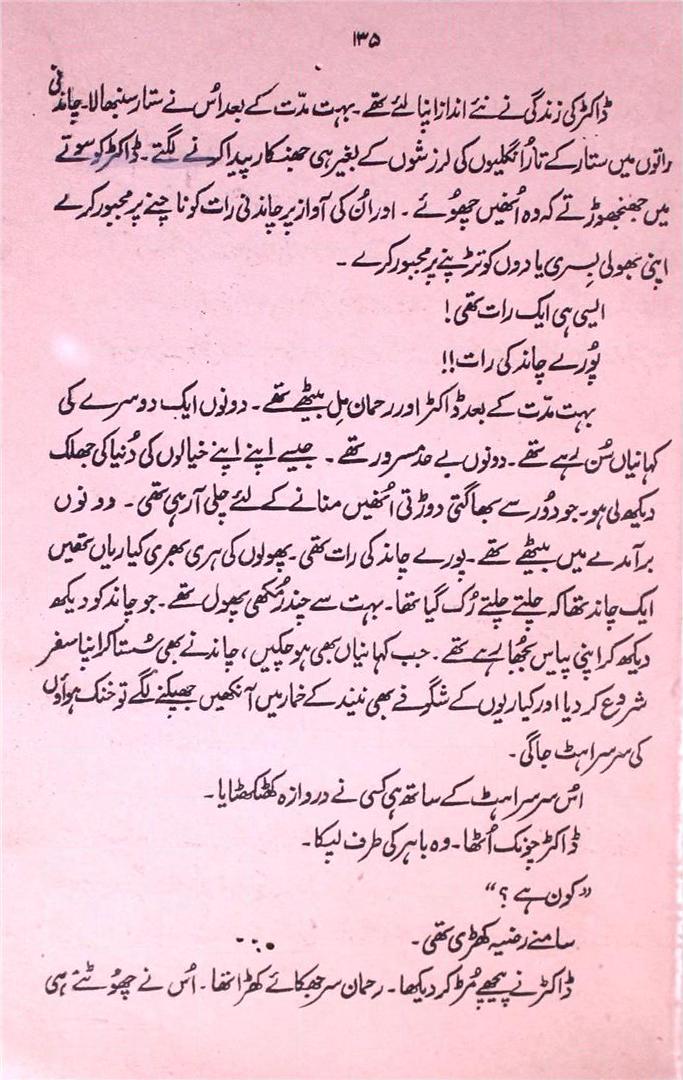 ۱۳۵
ڈاکٹر کی زندگی نے نئے انداز اپنا لئے تھے۔ بہت مدّت کے بعد اُس نے ستار سنبھالا۔ چاندنی
راتوں میں ستار کے تار اُنگلیوں کی لرزشوں کے بغیر ہی جھنکار پیدا کرنے لگتے۔ ڈاکٹر کو سوتے
میں جھنجھوڑتے کہ وہ اُنھیں چھوئے۔ اور اُن کی آواز پر چاندنی رات کو ناچنے پر مجبور کرے
اپنی بھولی بِسری یادوں کو تڑپنے پر مجبور کرے۔
ایسی ہی ایک رات تھی!
پُورے چاند کی رات!!
بہت مدّت کے بعد ڈاکٹر اور رحمان مِل بیٹھے تھے۔ دونوں ایک دوسرے کی
کہانیاں سُن رہے تھے۔ دونوں بے حد مسرور تھے۔ جیسے اپنے اپنے خیالوں کی دُنیا کی جھلک
دیکھ لی ہو۔ جو دُور سے بھاگتی دوڑتی اُنھیں منانے کے لئے چلی آرہی تھی۔ دونوں
برآمدے میں بیٹھے تھے۔ پورے چاند کی رات تھی۔ پھولوں کی ہری بھری کیاریاں تھیں
ایک چاند تھا کہ چلتے چلتے رُک گیا تھا۔ بہت سے چندر مُکھی پھول تھے۔ جو چاند کو دیکھ
دیکھ کر اپنی پیاس بُجھا رہے تھے۔ جب کہانیاں بھی ہو چکیں، چاند نے بھی سُستا کر اپنا سفر
شروع کر دیا اور کیاریوں کے شگوفے بھی نیند کے خمار میں آنکھیں جھپکنے لگے تو خنک ہواؤں
کی سرسراہٹ جاگی۔
اُس سرسراہٹ کے ساتھ ہی کسی نے دروازہ کھٹکھٹایا۔
ڈاکٹر چونک اُٹھا۔ وہ باہر کی طرف لپکا۔
”کون ہے؟“
سامنے رضیہ کھڑی تھی۔
ڈاکٹر نے پیچھے مُڑ کر دیکھا۔ رحمان سر جھکائے کھڑا تھا۔ اُس نے چھوٹتے ہی